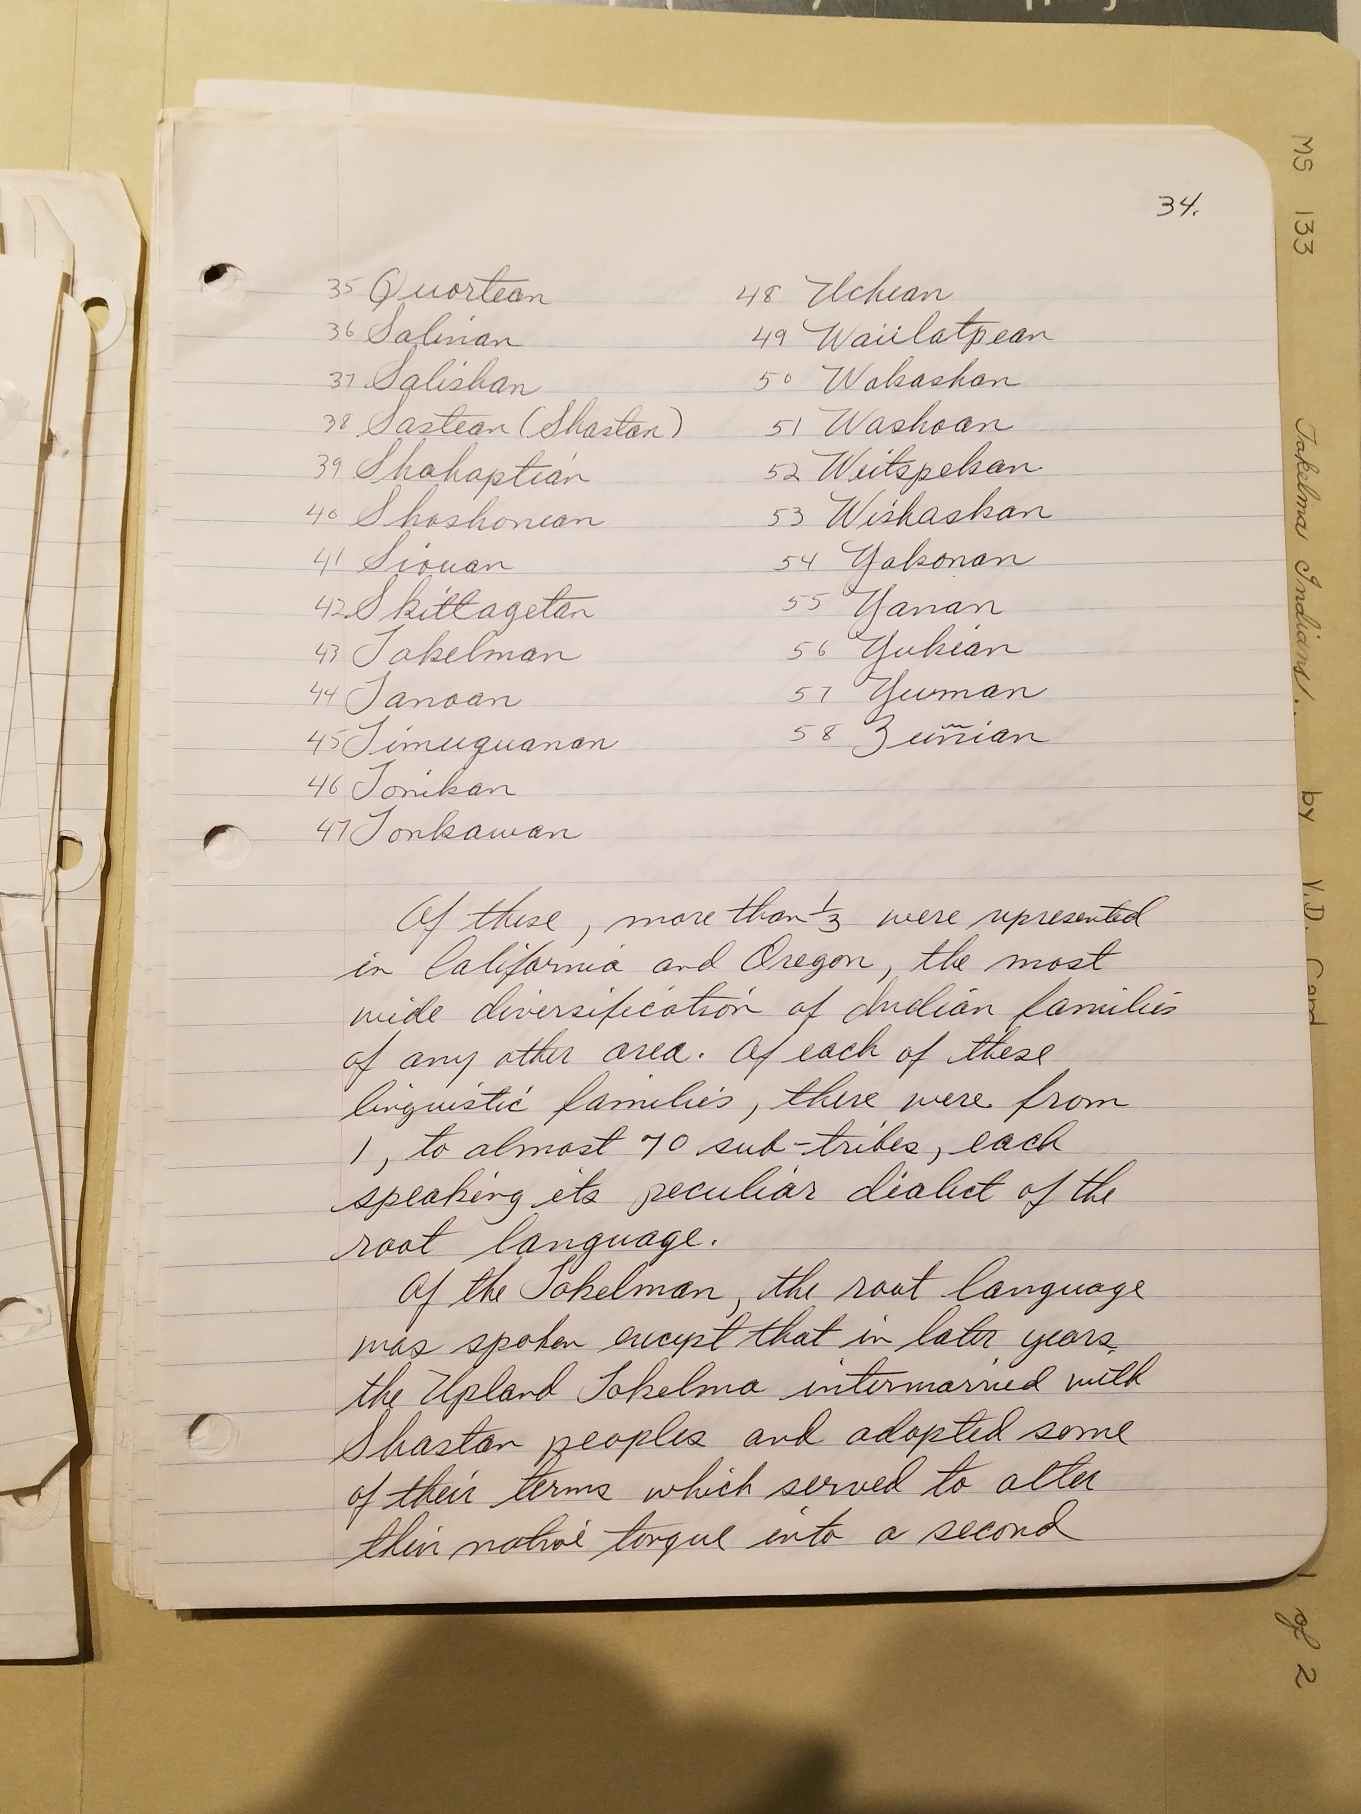 34.
35 Quortean
36 Salinan
37 Salishan
38 Sastean (Shastan)
39 Shahaptian
40 Shoshonean
41 Siouan
42 Skittagetan
43 Takelman
44 Tanoan
45 Timuquanan
46 Tonikan
47 Tonkawan
48 Uchean
49 Waiilatpean
50 Wakashan
51 Washoan
52 Weitspekan
53 Wishaskan
54 Yakonan
55 Yanan
56 Yukian
57 Yuman
58 Zuñian
Of these, more than 1/3 were represented
in California and Oregon, the most
wide diversification of Indian families
of any other area. Of each of these
linguistic families, there were from
1, to almost 70 sub-tribes, each
speaking its peculiar dialect of the
root language.
Of the Takelman, the root language
was spoken except that in later years
the Upland Takelma intermarried with
Shastan peoples and adopted some
of their terms which served to alter
their native tongue into a second
MS 133 Takelma Indians! .. by Y.D. Card 1 of 2